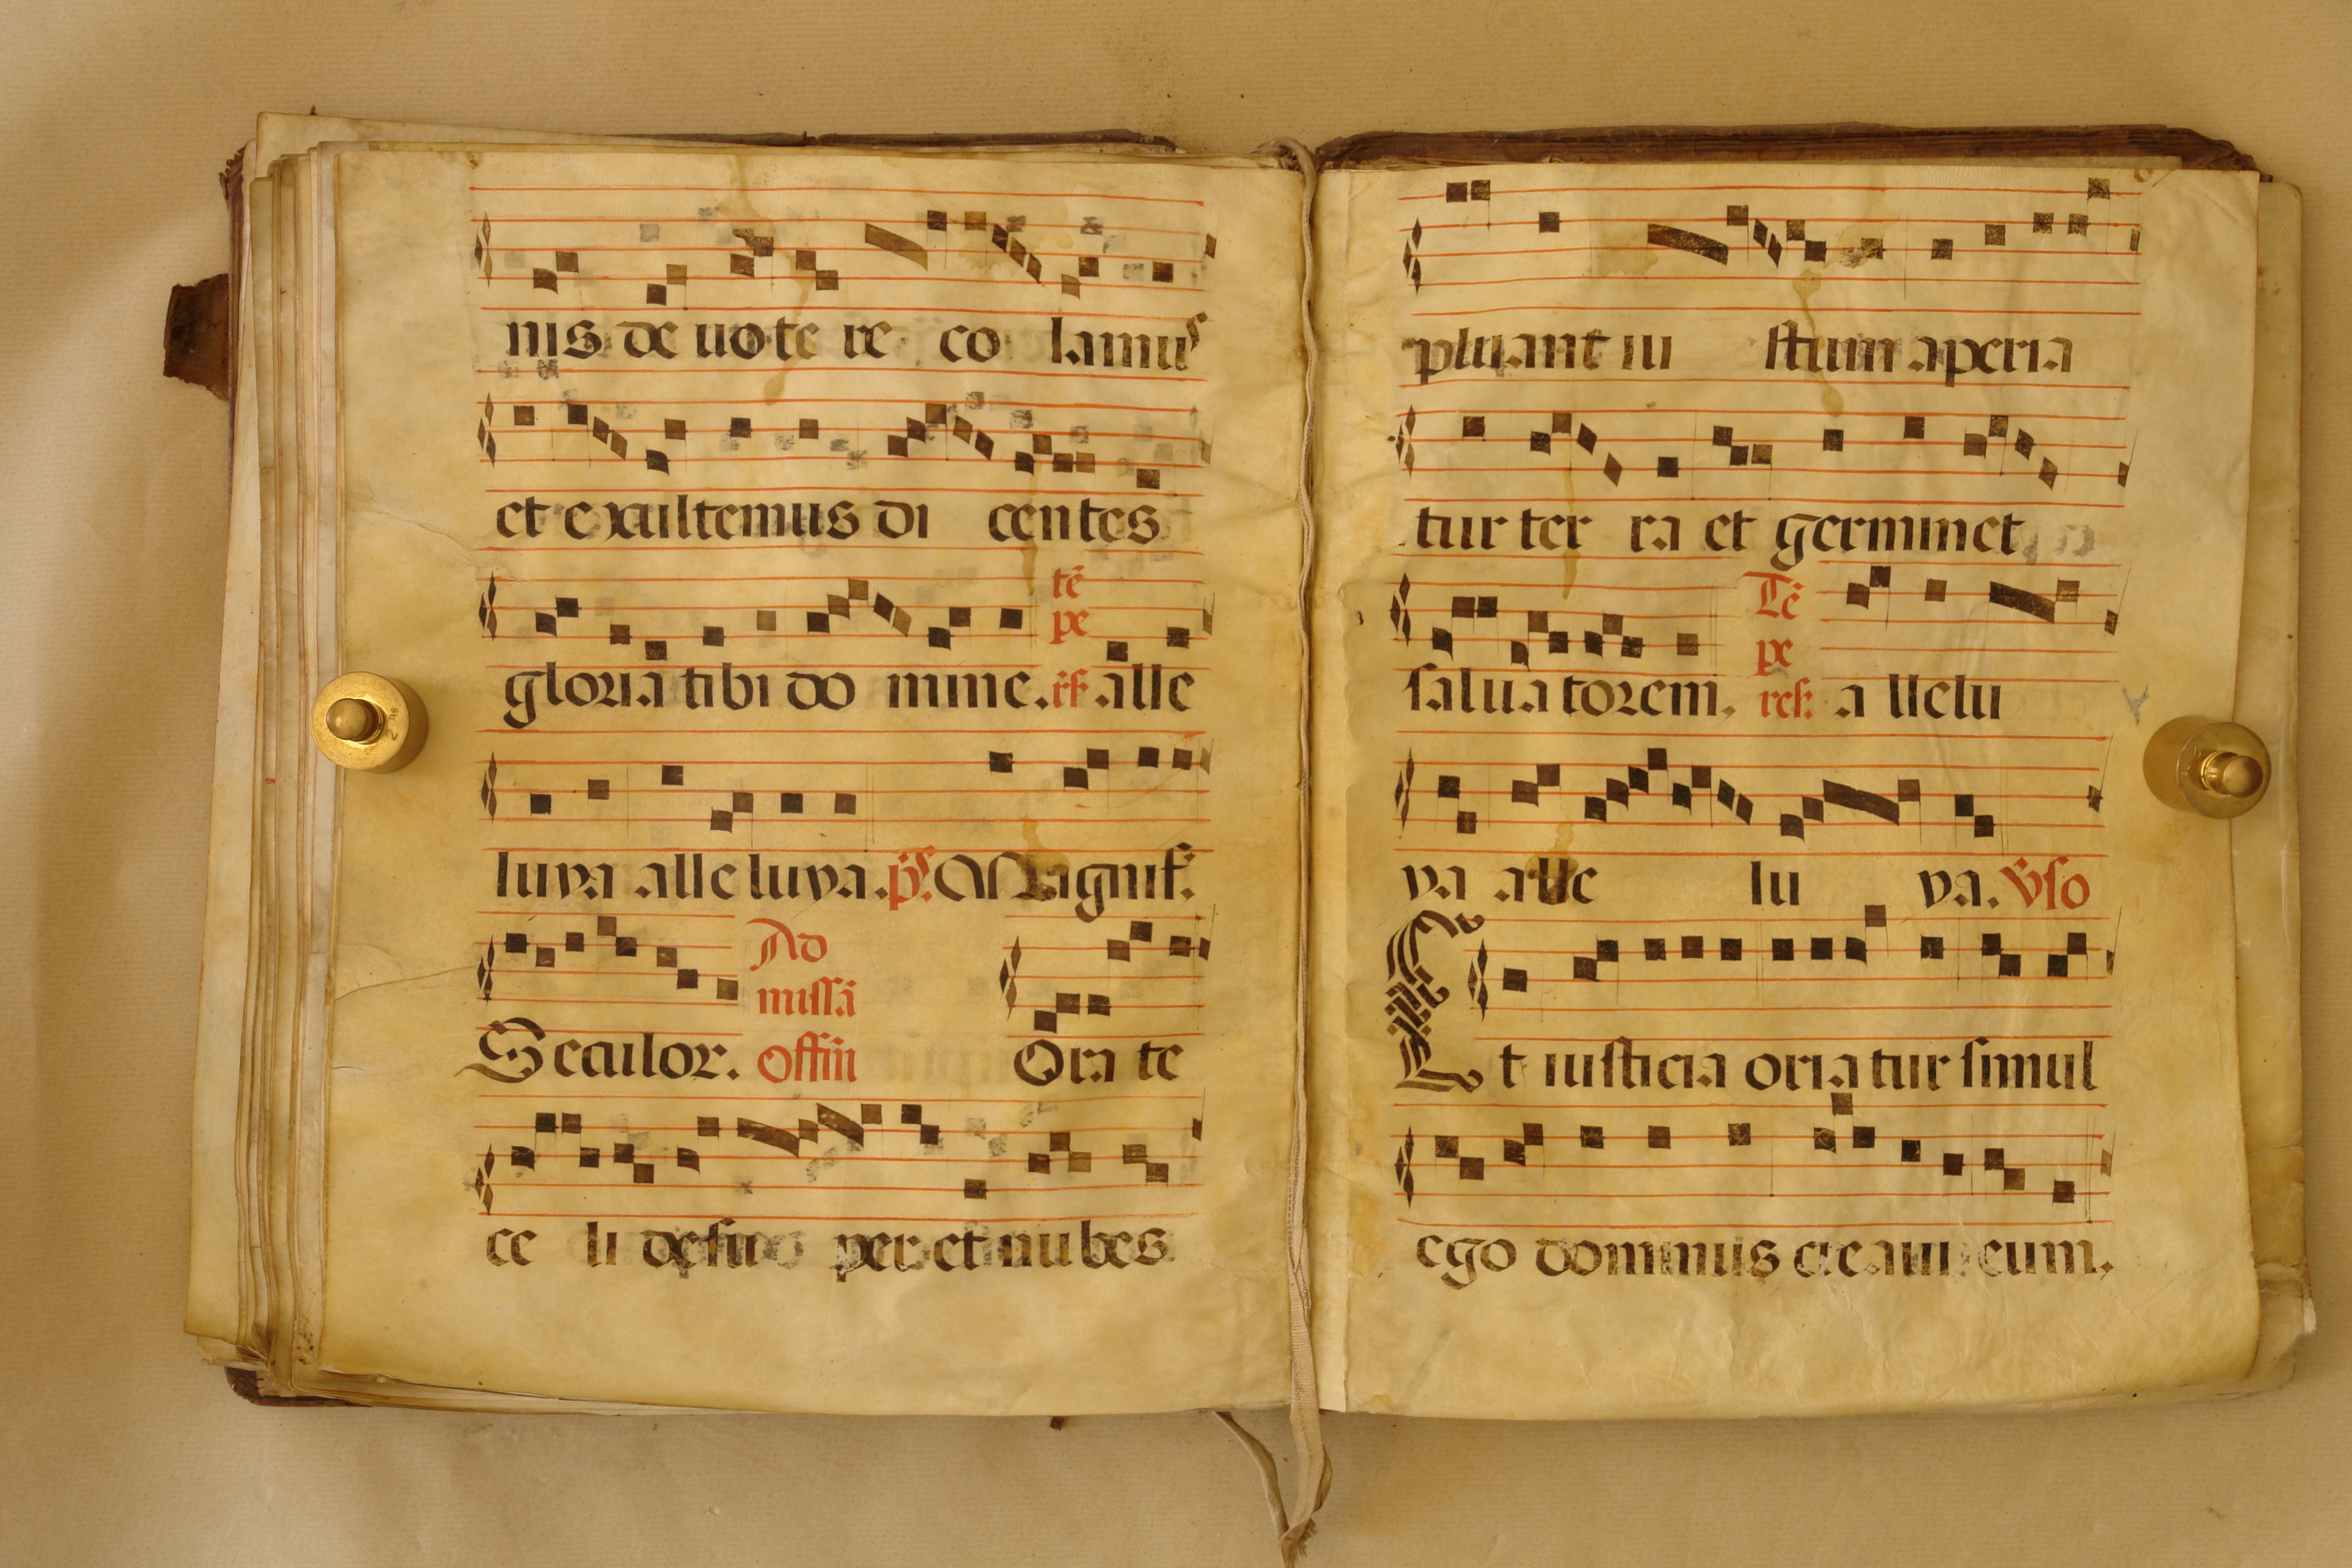 nis de uo te re co lamus
et exultemus di centes
gloria tibi do mine. tē pe rſ. alle
luya alle luya. pſ. Magnif.
Seculor. Ad missā offm̄ Ora te
ce li desu per et nu bes
pluant iu stum aperia
tur ter ra et germinet
salua torem. Tē pe reſ. a llelu
ya alle lu ya. ℣so
Et iusticia oria tur simul
ego dominus creaui eum.